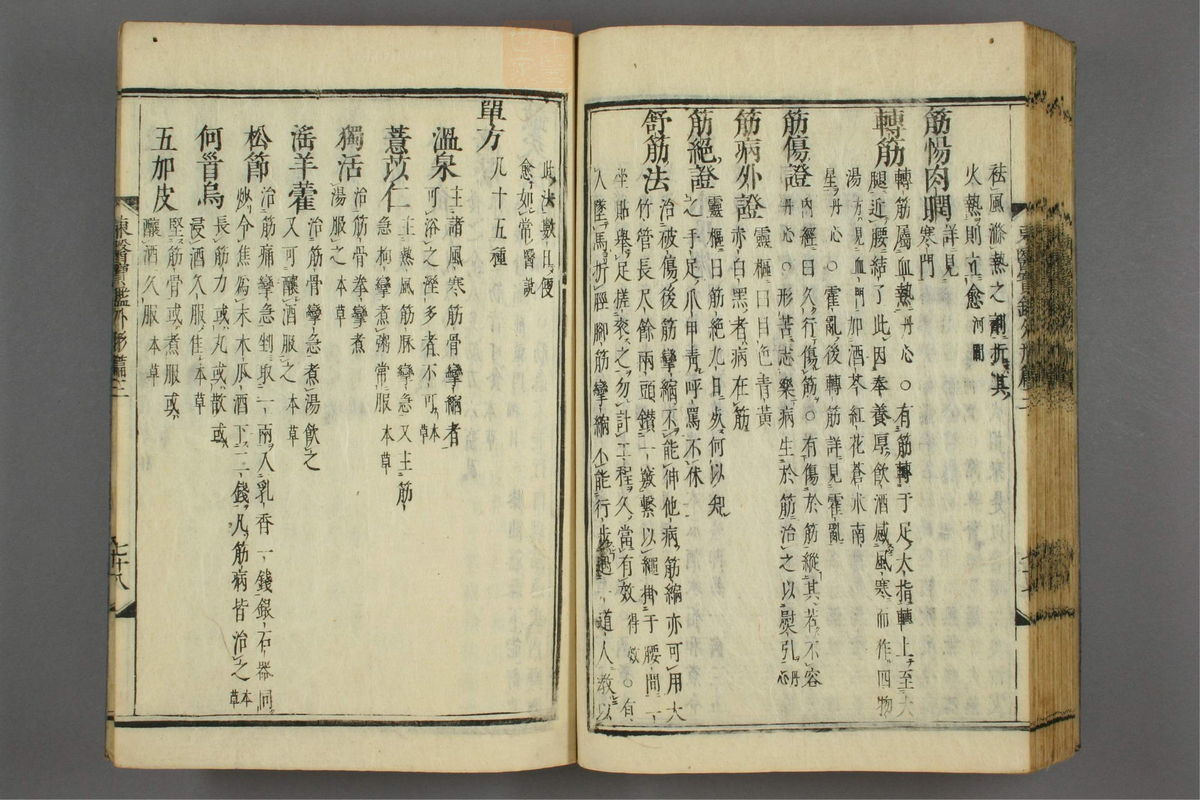 袪風滌熱之劑折其
火熱則立愈河間
筋惕肉瞤詳見
寒門
轉筋轉筋屬血熱丹心○有筋轉于足大指轉上至大
腿近腰結了此因奉養厚飲酒感風寒而作四物
湯方見血門加酒芩紅花蒼朮南
星丹心○霍亂後轉筋詳見霍亂
筋傷證內經曰久行傷筋○有傷於筋縱其若不容
丹心○形苦志樂病生於筋治之以熨引丹心
筋病外證靈樞曰色青黃
赤白黑者病在筋
筋絕證靈樞曰筋絕九日死何以知
之手足爪甲青呼罵不休
舒筋法治破傷後筋攣縮不能伸他病筋縮亦可用大
竹管長尺餘兩頭鑽一竅繫以繩掛于腰間一
坐貼舉足搓滾之勿計工程久當有效得效○有
人墜馬折脛脚筋攣縮不能行步遇一道人教以
此法數日便
愈如常醫說
單方凡十五種
溫泉主諸風寒筋骨攣縮者
可浴之溼多者不可本草
薏苡仁主熱風筋脉攣急又主筋
急拘攣煮粥常服本草
獨活治筋骨拳攣煮
湯服之本草
淫羊藿治筋骨攣急煮湯飲之
又可釀酒服之本草
松節治筋痛攣急剉取一兩入乳香一錢銀石器同
炒令焦爲末木瓜酒下二錢凡筋病皆治之本草
何首烏長筋力或丸或散或
浸酒久服佳本草
五加皮堅筋骨或煮服或
釀酒久服本草
東醫寶鑑外形篇三
七十八